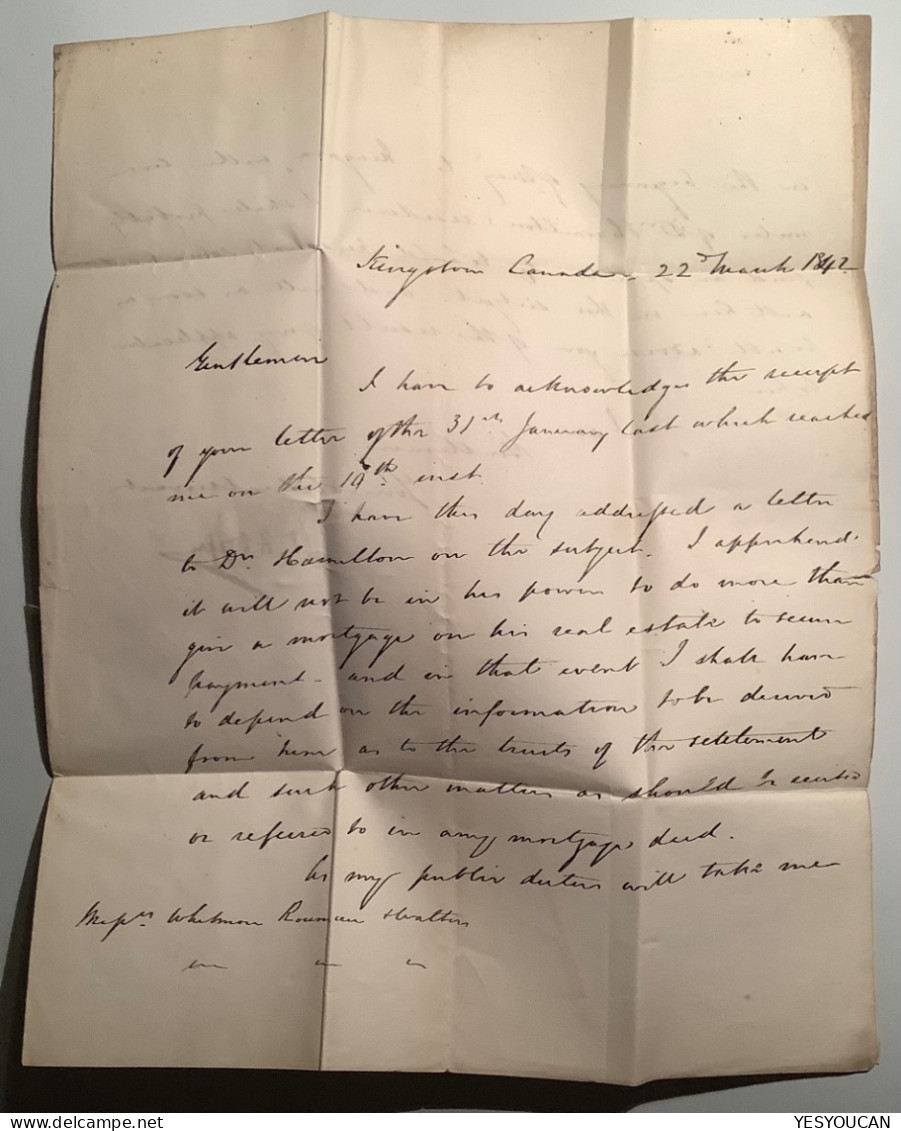 Kingston Canada 22d March 1842
Gentlemen
I have to acknowledge the receipt
of your letter of the 31st January last which reached
me on the 19th inst.
I have this day addressed a letter
to Dr Hamilton on the subject. I apprehend
it will not be in his power to do more than
give a mortgage on his real estate to secure
payment - and in that event I shall have
to depend on the information to be derived
from him as to the trusts of the settlement
and such other matters as should be recited
or referred to in any mortgage deed.
As my public duties will take me
Messrs Whitmore
YESYOUCAN